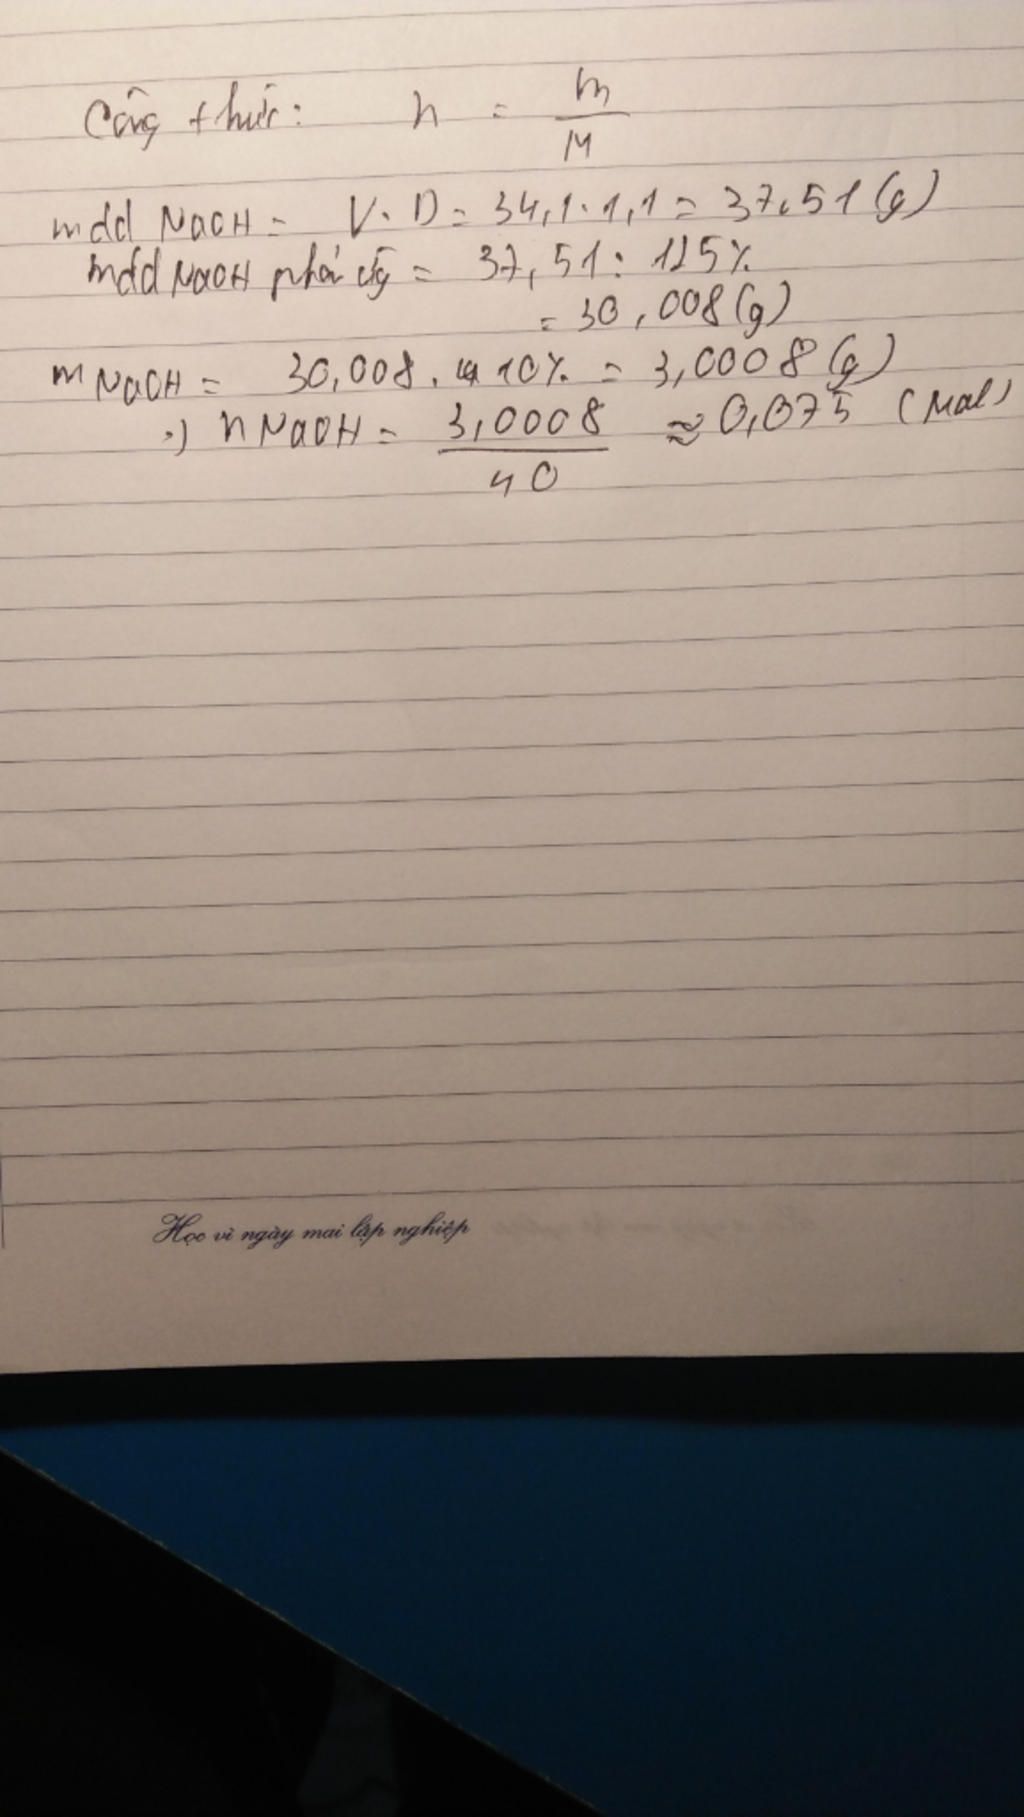 Công thức: n = m / M
mdd NaOH = V . D = 34,1 . 1,1 = 37,51 (g)
mdd NaOH phản ứg = 37,51 : 125%
= 30,008 (g)
m NaOH = 30,008 . 10% = 3,0008 (g)
=) n NaOH = 3,0008 / 40 ≈ 0,075 (mol)
Học vì ngày mai lập nghiệp